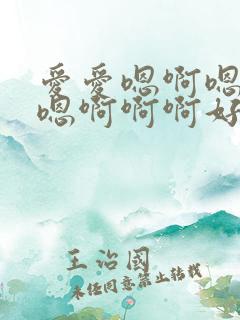 爱爱嗯啊嗯
嗯啊啊啊好
王治国
未经同意禁止转载